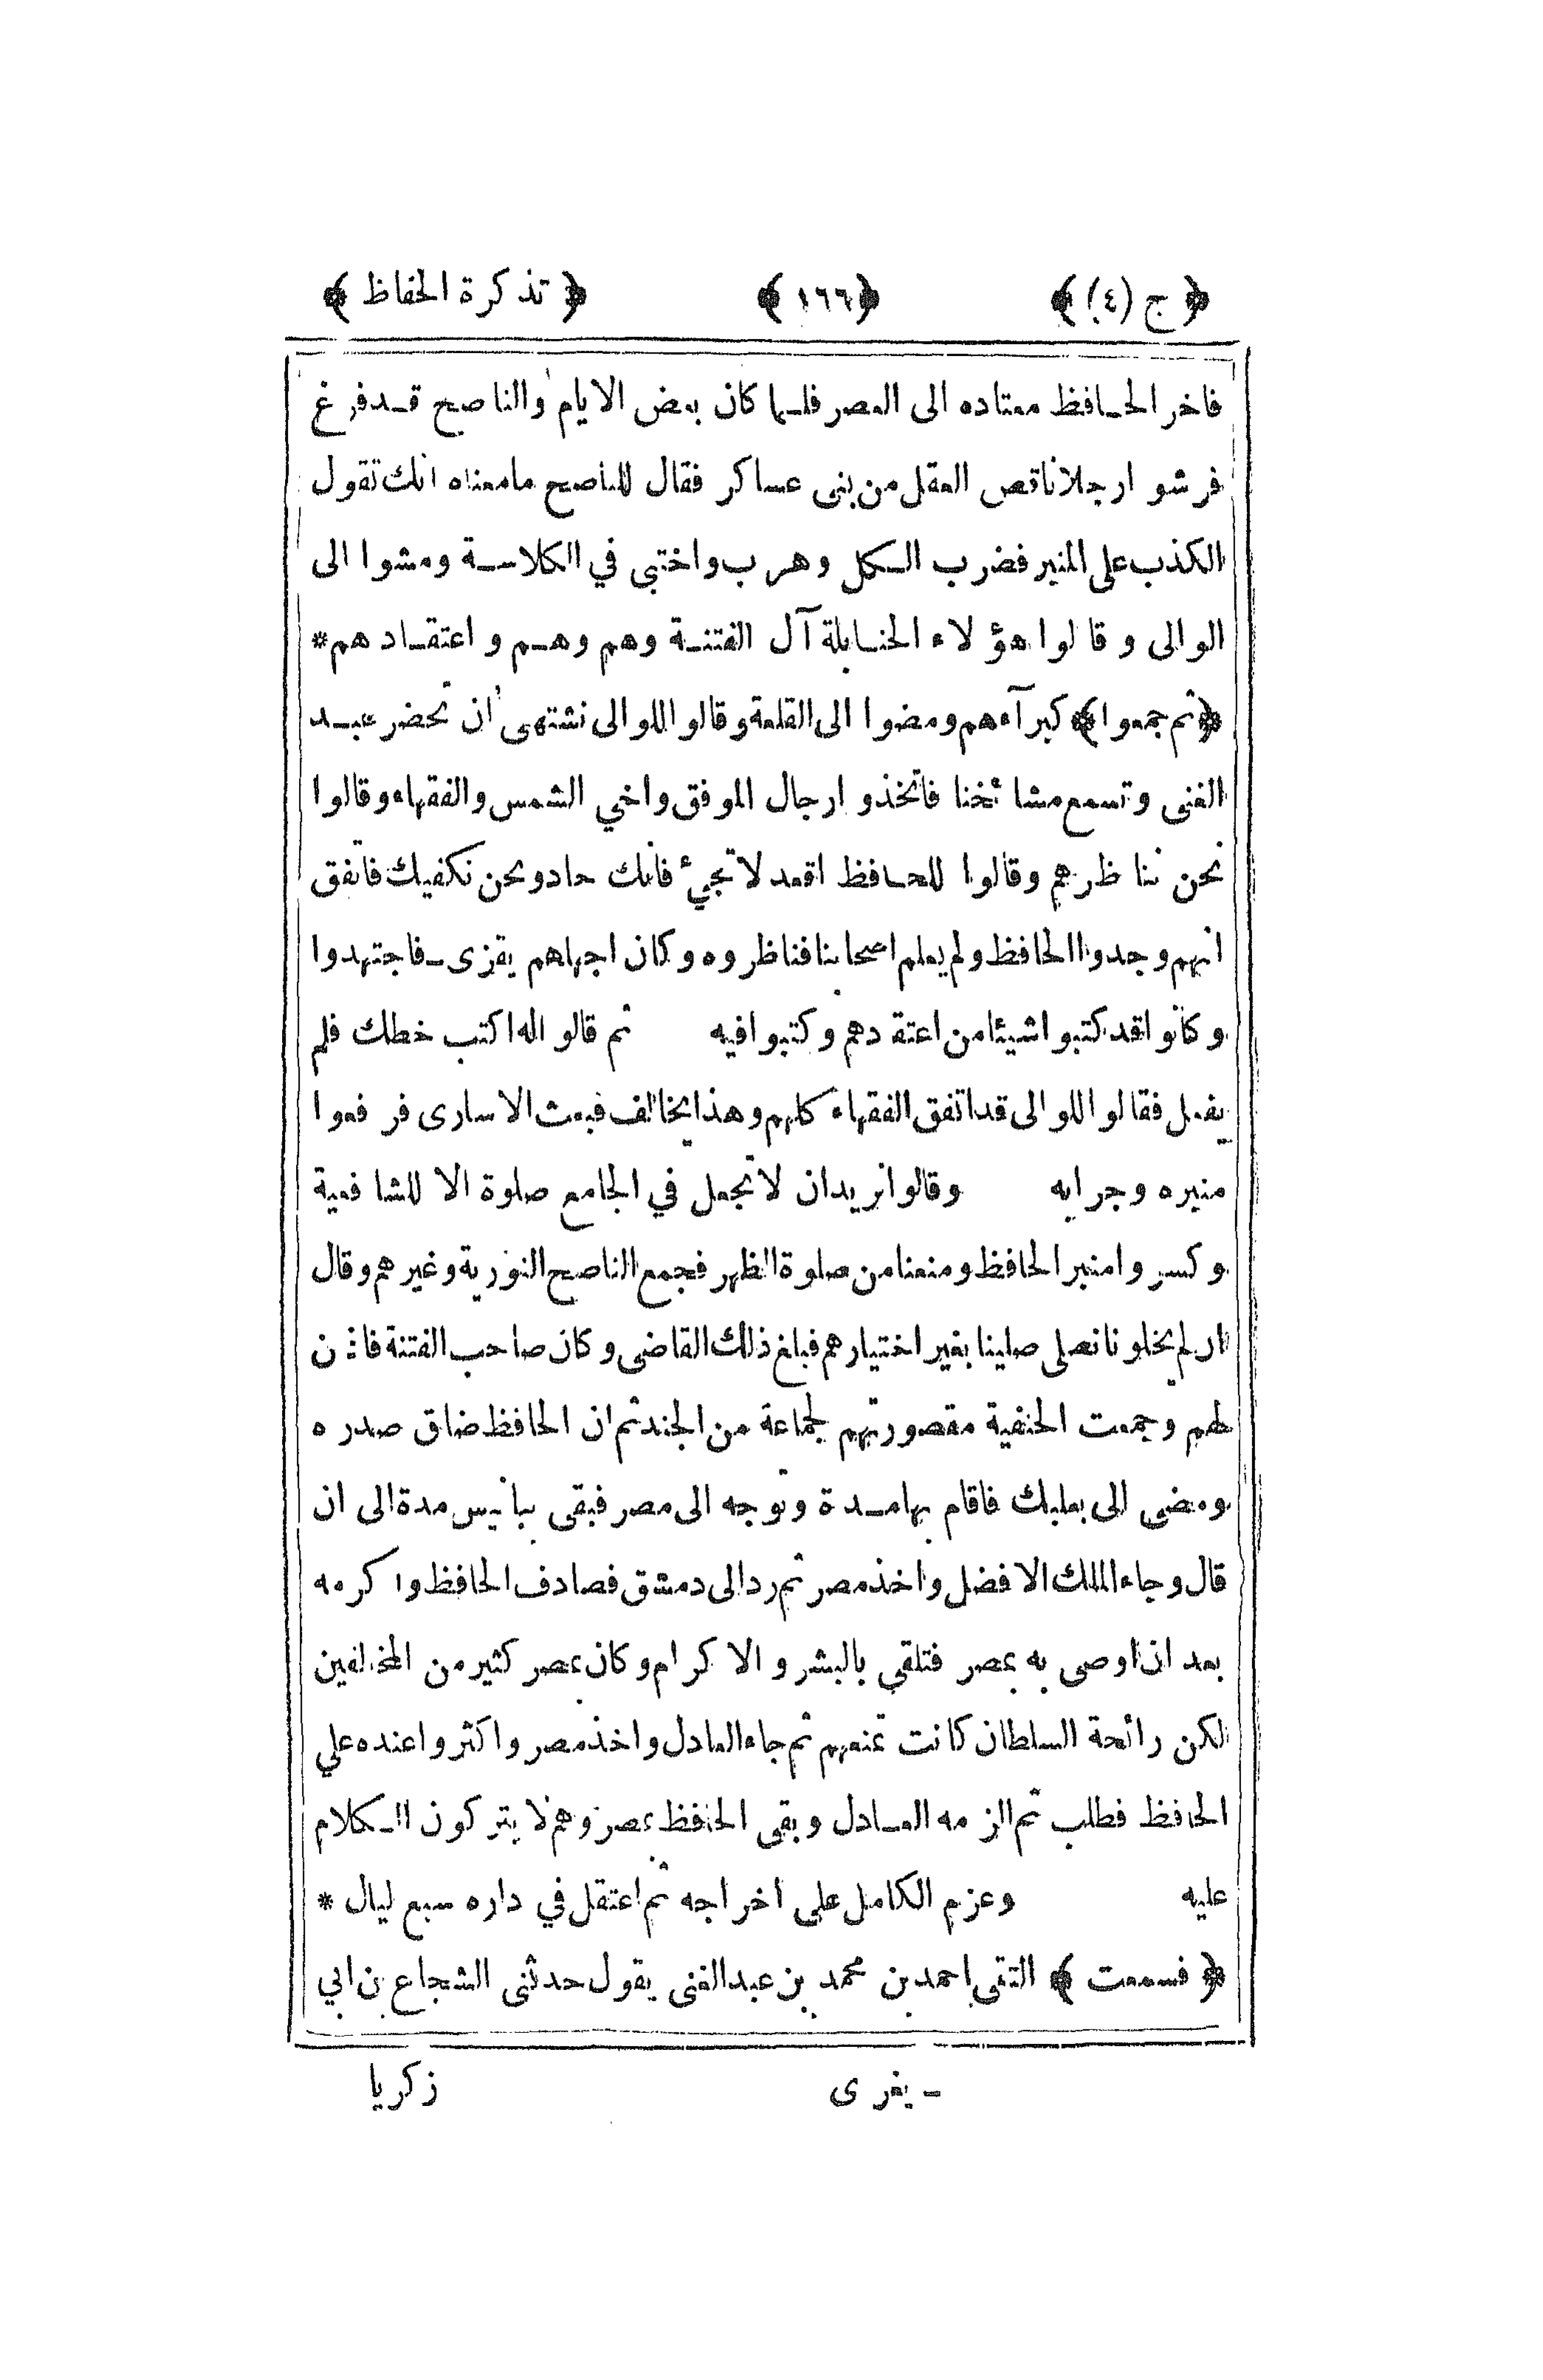 ﴿ ج (٤) ﴾ ﴿ ١٦٦ ﴾ ﴿ تذكرة الحفاظ ﴾
فاخر الحافظ معتاده الى العصر فلما كان بعض الايام والناصح قد فرغ
فرشوا رجلا ناقص العقل من بنى عساكر فقال للناصح ما معناه انك تقول
الكذب على المنبر فضرب الكل وهرب واختبى في الكلاسة ومشوا الى
الوالى وقالوا هؤلاء الحنابلة آل الفتنة وهم وهم واعتقادهم *
﴿ ثم جمعوا ﴾ كبرآءهم ومضوا الى القلعة وقالوا للوالى نشتهى ان تحضر عبد
الغنى وتسمع مشائخنا فاتخذوا رجال الموفق واخي الشمس والفقهاء وقالوا
نحن نناظرهم وقالوا للحافظ اقعد لا تجيء فانك حاد ونحن نكفيك فاتفق
انهم وجدوا الحافظ ولم يعلم اصحابنا فناظروه وكان اجهاهم يقزى - فاجتهدوا
وكانوا قد كتبوا شيئا من اعتقدهم وكتبوا فيه ثم قالوا له اكتب خطك فلم
يفعل فقالوا للوالى قد اتفق الفقهاء كلهم وهذا يخالف فبعث الاسارى فرفعوا
منبره وجرابه وقالوا نريد ان لا تجعل في الجامع صلوة الا للشافعية
وكسروا منبر الحافظ ومنعنا من صلوة الظهر فجمع الناصح النورية وغيرهم وقال
ان لم يخلونا نصلى صلينا بغير اختيارهم فبلغ ذلك القاضى وكان صاحب الفتنة فاذن
لهم وجمعت الحنفية مقصورتهم لجماعة من الجند ثم ان الحافظ ضاق صدره
ومضى الى بعلبك فاقام بها مدة وتوجه الى مصر فبقى بنابيس مدة الى ان
قال وجاء الملك الافضل واخذ مصر ثم رد الى دمشق فصادف الحافظ واكرمه
بعد ان اوصى به بمصر فتلقي بالبشر والاكرام وكان بمصر كثير من المخالفين
لكن رائحة السلطان كانت تمنعهم ثم جاء العادل واخذ مصر واكثروا عنده على
الحافظ فطلب ثم الزمه العادل وبقى الحافظ بمصر وهم لا يتركون الكلام
عليه وعزم الكامل على اخراجه ثم اعتقل في داره سبع ليال *
﴿ فسمعت ﴾ التقى احمد بن محمد بن عبد الغنى يقول حدثنى الشجاع بن ابي
- يفرى زكريا